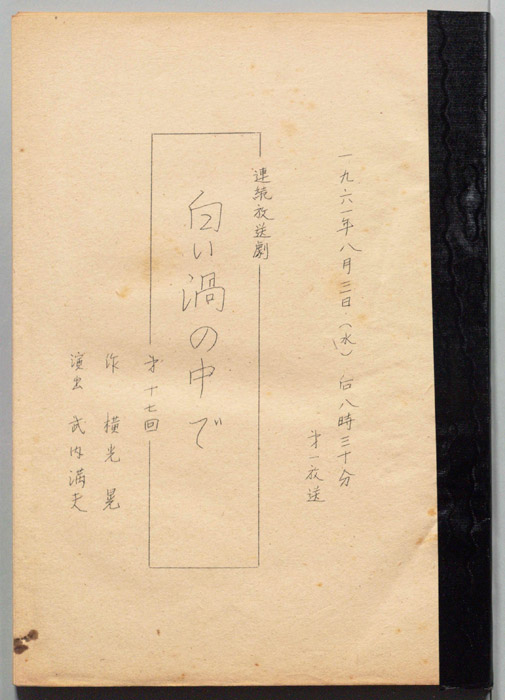 一九六一年八月二日（水）后八時三十分
第一放送
連続放送劇
白い渦の中で
第十七回
作 横光 晃
演出 武内満夫